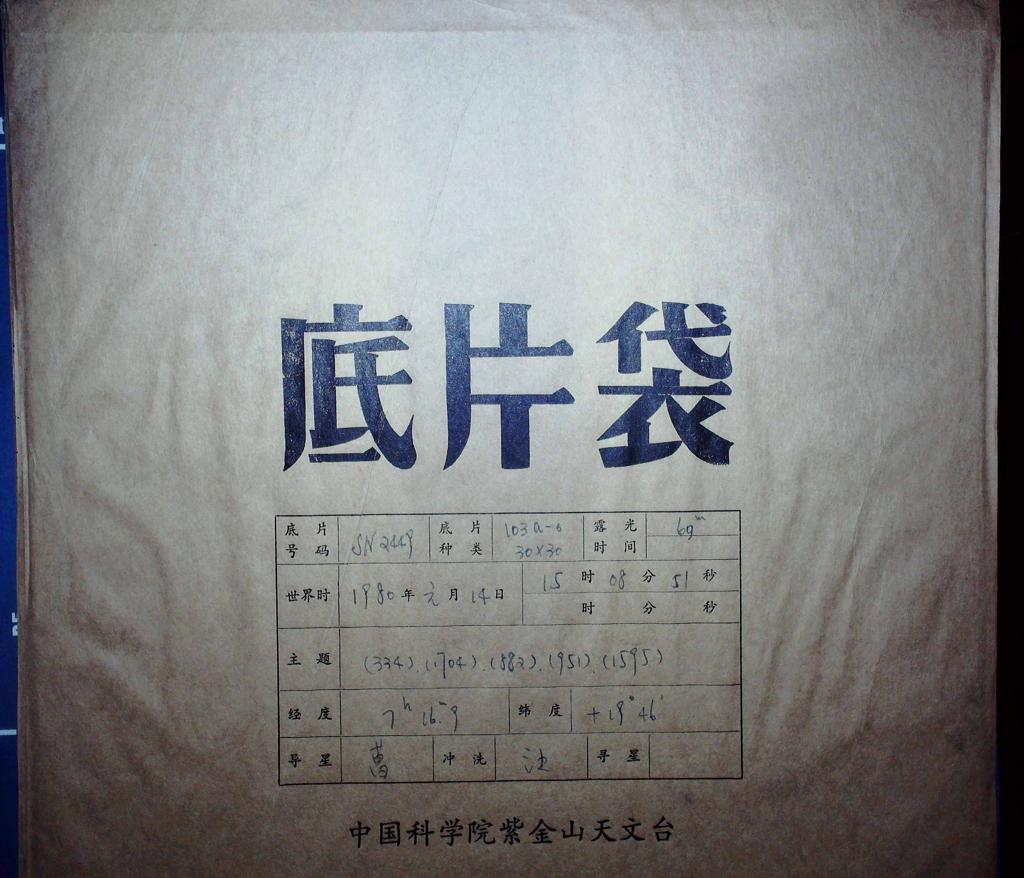 底片袋
底片号码 SN2449 底片种类 103a-o 30×30 露光时间 60m
世界时 1980年元月14日 15时08分51秒
时 分 秒
主题 (334).(1704).(882).(951).(1595)
经度 7h 16m.9 纬度 +19°46′
导星 曹 冲洗 寻星
中国科学院紫金山天文台